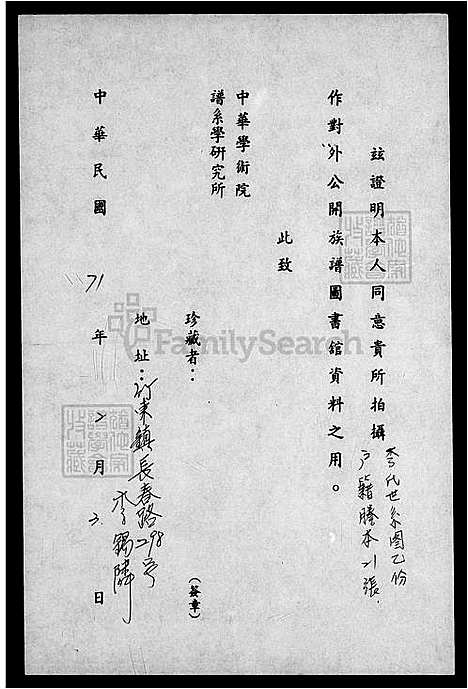 茲證明本人同意貴所拍攝李氏世系圖乙份
戶籍謄本21張
作對外公開族譜圖書館資料之用。
此致
中華學術院
譜系學研究所
珍藏者：
(簽章)
地址：竹東鎮長春路298号
李錫隣
中華民國71年2月3日
FamilySearch